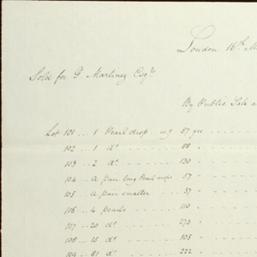 London 16th M
Sold for P. Martinez Esqr
By Public Sale
Lot 101 .. 1 Pearl drop 87 grs
102 .. 1 do 88
103 .. 2 do 130
104 .. a pair long Pearl 57
105 .. a pair smaller 57
106 .. 4 pearls 110
107 .. 20 do 270
108 .. 15 do 105
109 .. 81 do 222